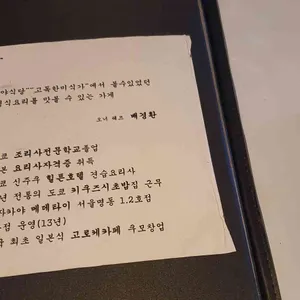 야식당""고독한미식가"에서 볼수있었던
정식요리를 맛볼 수 있는 가게
오너 쉐프 백경환
쿄 조리사전문학교졸업
본 요리사자격증 취득
쿄 신주우 힐튼호텔 견습요리사
년 전통의 도쿄 키우즈시초밥집 근무
자카야 메메타이 서울명동 1,2호점
점 운영(13년)
국 최초 일본식 고로케카페 우모창업